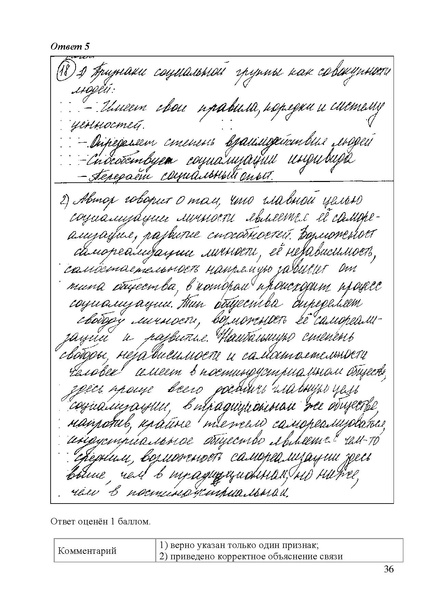 Ответ 5
18 1) Признаки социальной группы как совокупности
людей:
- Имеет свои правила, порядки и систему
ценностей.
- Определяет степень взаимодействия людей
- Способствует социализации индивида
- Передаёт социальный опыт.
2) Автор говорит о том, что главной целью
социализации личности является её саморе-
ализация, развитие способностей. Возможность
самореализации личности, её независимость,
самостоятельность напрямую зависит от
типа общества, в котором происходит процесс
социализации. Тип общества определяет
свободу личности, возможность её самореали-
зации и развития. Наибольшую степень
свободы, независимости и самостоятельности
человек имеет в постиндустриальном обществе,
здесь проще всего достичь главную цель
социализации, в традиционном же обществе,
напротив, крайне тяжело самореализоваться,
индустриальное общество является чем-то
средним, возможность самореализации здесь
выше, чем в традиционном, но ниже,
чем в постиндустриальном.
Ответ оценён 1 баллом.
Комментарий
1) верно указан только один признак;
2) приведено корректное объяснение связи
36